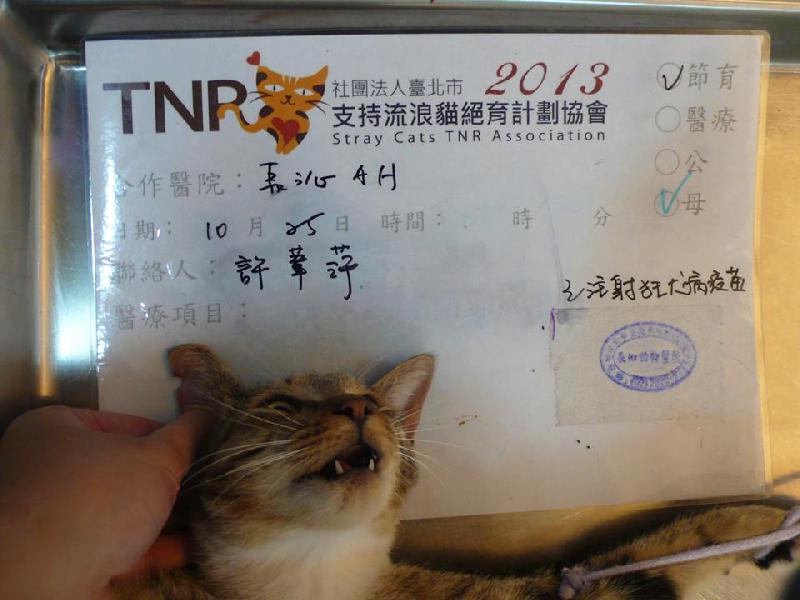 TNR
社團法人臺北市 2013
支持流浪貓絕育計劃協會
Stray Cats TNR Association
節育
醫療
公
母
合作醫院： AH
日期： 10 月 25 日 時間： 時 分
聯絡人： 許
醫療項目：
注射狂犬病疫苗
動物醫院